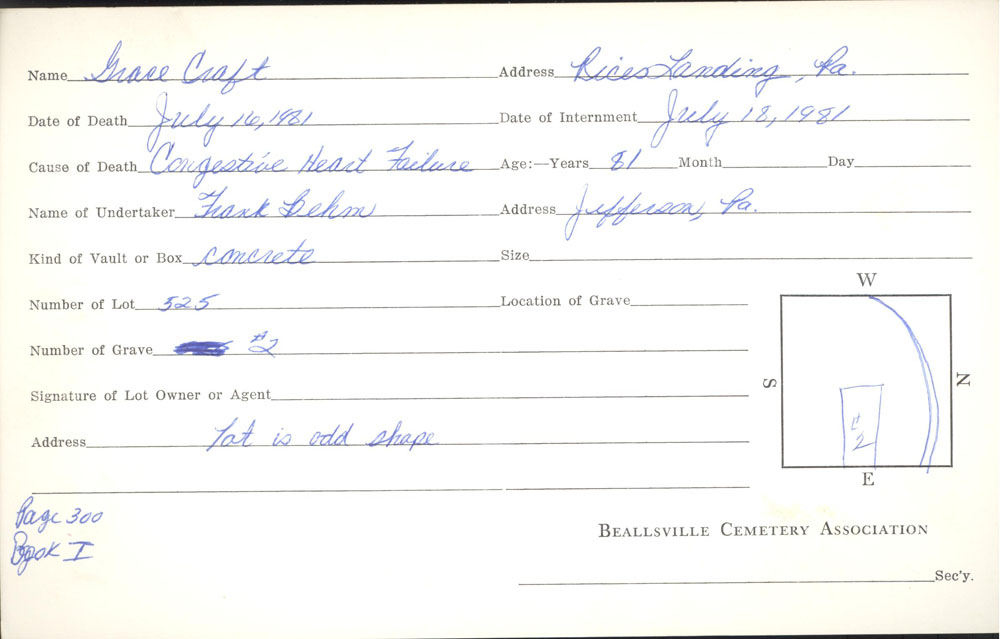 Name Grace Craft Address Rices Landing, Pa.
Date of Death July 16, 1981 Date of Internment July 18, 1981
Cause of Death Congestive Heart Failure Age:—Years 81 Month Day
Name of Undertaker Frank Behm Address Jefferson, Pa.
Kind of Vault or Box concrete Size
Number of Lot 525 Location of Grave
Number of Grave #2
Signature of Lot Owner or Agent
Address Lot is odd shape
W
S
N
#2
E
Page 300
Book I
BEALLSVILLE CEMETERY ASSOCIATION
Sec'y.